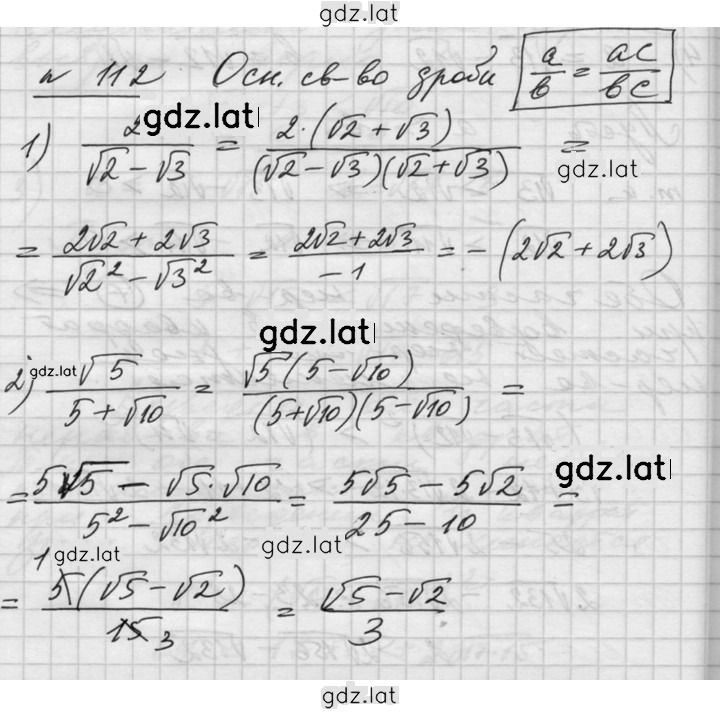 gdz.lat
n 112 Осн. св-во дроби a/b = ac/bc
gdz.lat
1) 2/(√2 − √3) = 2·(√2 + √3)/((√2 − √3)(√2 + √3)) =
gdz.lat
= (2√2 + 2√3)/(√2² − √3²) = (2√2 + 2√3)/−1 = −(2√2 + 2√3)
gdz.lat
gdz.lat
2) √5/(5 + √10) = √5(5 − √10)/((5 + √10)(5 − √10)) =
gdz.lat
= (5√5 − √5·√10)/(5² − √10²) = (5√5 − 5√2)/(25 − 10) =
gdz.lat
gdz.lat
1
= 5(√5 − √2)/15 3 = (√5 − √2)/3
gdz.lat